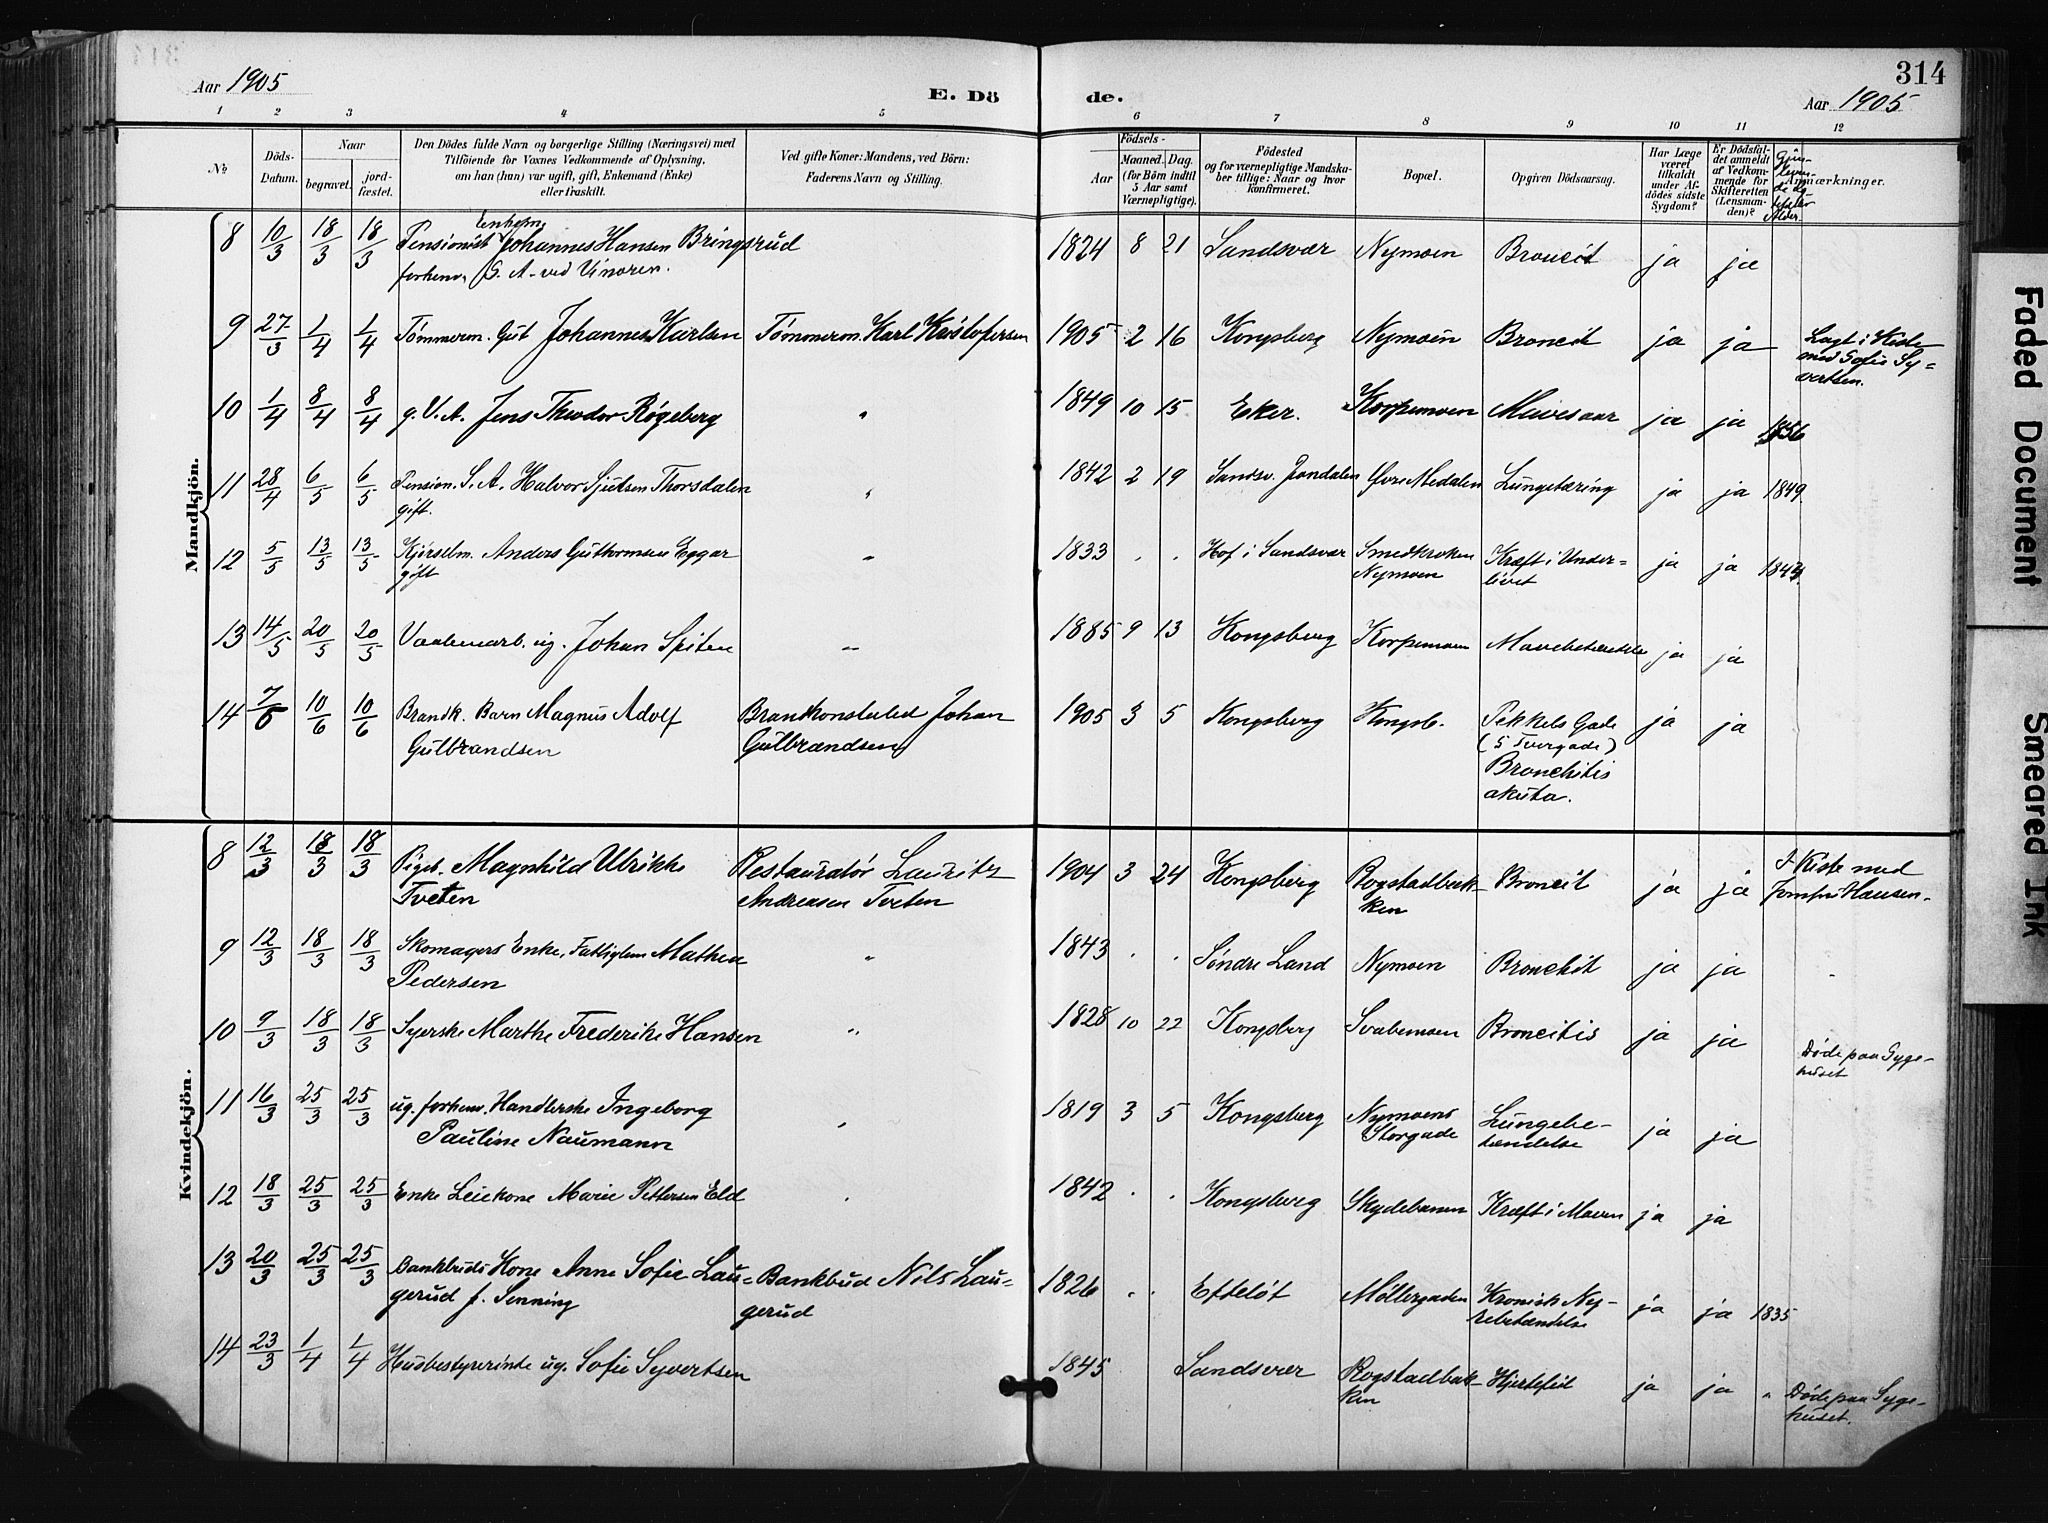 314
Aar 1905
E. Dö
de.
Aar 1905
1 2 3 4 5 6 7 8 9 10 11 12
No
Döds-Datum.
Naar
begravet.
jord-fæstet.
Den Dödes fulde Navn og borgerlige Stilling (Næringsvei) med
Tilföiende for Voxnes Vedkommende af Oplysning,
om han (hun) var ugift, gift, Enkemand (Enke)
eller fraskilt.
Ved gifte Koner: Mandens, ved Börn:
Faderens Navn og Stilling.
Födsels-
Aar
Maaned. Dag.
(for Börn indtil
5 Aar samt
Værnepligtige).
Födested
og for værnepligtige Mandska-
ber tillige: Naar og hvor
konfirmeret.
Bopæl.
Opgiven Dödsaarsag.
Har Læge
været
tilkaldt
under Af-
dödes sidste
Sygdom?
Er Dödsfal-
det anmeldt
af Vedkom-
mende for
Skifteretten
(Lensman-
den)?
Anmærkninger.
Mandkjön.
8 10/3 18/3 18/3 Pensionist Enkem. Johannes Hansen Bringsrud 1824 8 21 Sandsvær Nymoen Broncit ja ja
forhenv. S. A. ved Vinoren.
9 27/3 1/4 1/4 Tömmerm. Gut Johannes Karlsen Tömmerm. Karl Kristofersen 1905 2 16 Kongsberg Nymoen Broncit ja ja Lagt i Kiste
med Sofie Sy-
vertsen.
10 1/4 8/4 8/4 g. V. A. Jens Theodor Røgeberg " 1849 10 15 Eker. Korpemoen Mavesaar ja ja 1856
11 28/4 6/5 6/5 Pension. S. A. Halvor Sjulsen Thorsdalen " 1842 2 19 Sandsv. Jondalen Øvre Medalen Lungetæring ja ja 1849
gift.
12 5/5 13/5 13/5 Kjørselm. Anders Guttormsen Eggar " 1833 " " Hof i Sandsvær Smedkroken Kræft i Under- ja ja
gift Nymoen livet
13 14/5 20/5 20/5 Vaabenarb. ug. Johan Spiten " 1885 9 13 Kongsberg Korpemoen Mavebetændelse ja ja
14 7/6 10/6 10/6 Brandk. Barn Magnus Adolf Brandkonstabel Johan 1905 3 5 Kongsberg Kongsb. Pekkels Gade ja ja
Gulbrandsen Gulbrandsen (5 Tvergade)
Bronchitis
akuta.
Kvindekjön.
8 12/3 18/3 18/3 Pigeb. Magnhild Ulrikke Restauratör Lauritz 1904 3 24 Kongsberg Rogstadbak- Broncit ja ja I Kiste med
Tveten Andreasen Tveten ken Jomfru Hansen.
9 12/3 18/3 18/3 Skomagers Enke, Fattiglem Mathea " 1843 " " Søndre Land Nymoen Bronchit ja ja
Pedersen
10 9/3 18/3 18/3 Syerske Marthe Frederike Hansen " 1828 10 22 Kongsberg Svabemoen Broncitis ja ja Døde paa Syge-
huset
11 16/3 25/3 25/3 ug. forhenv. Handlerske Ingeborg " 1819 3 5 Kongsberg Nymoens Lungebe- ja ja
Pauline Naumann Storgade tændelse
12 18/3 25/3 25/3 Enke Leiekone Marie Pettersen Eld " 1842 " " Kongsberg Skydebanen Kræft i Maven ja ja
13 20/3 25/3 25/3 Bankbuds Kone Anne Sofie Lau- Bankbud Nils Lau- 1826 " " Efteløt Møllergaden Kronisk Ny- ja ja 1835
gerud f. Senning gerud rebetændelse
14 23/3 1/4 1/4 Husbestyrerinde ug. Sofie Syvertsen 1845 Sandsvær Rogstadbak- Hjertefeil ja ja " Døde paa Syge-
ken huset.
Faded Document
Smeared Ink